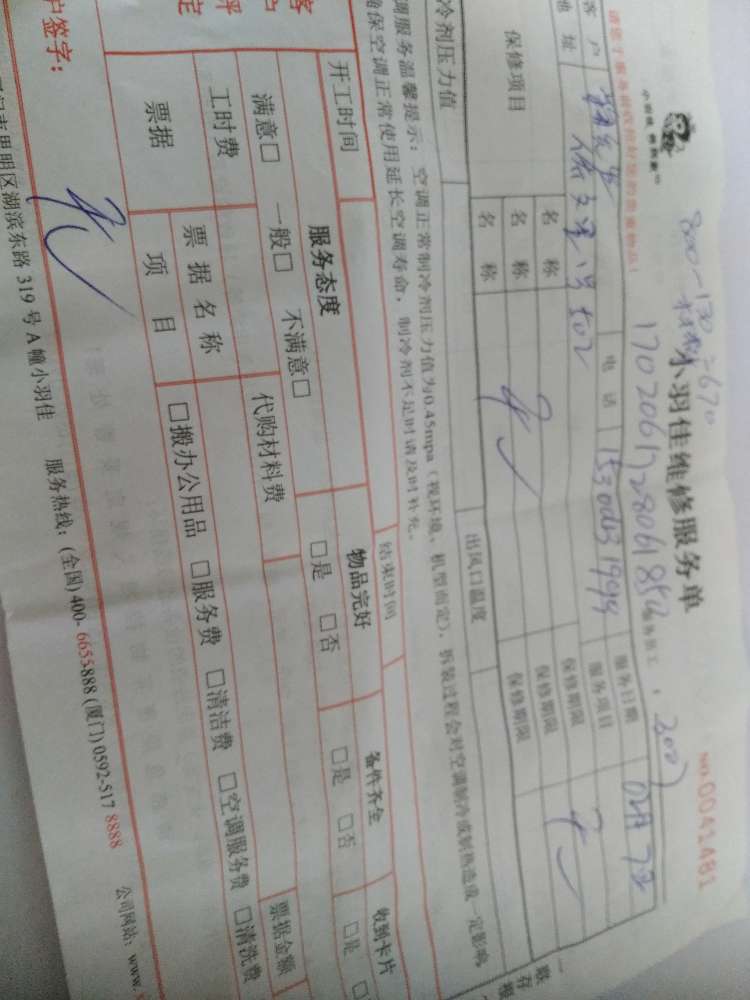 800-130=670
小羽佳维修服务单
NO.0041481
17020617280618512
请您于服务前收拾好您的贵重物品!
客户
电话
服务日期
地址
服务项目
保修项目
名称
保修期限
名称
保修期限
名称
保修期限
冷剂压力值
出风口温度
调服务温馨提示:空调正常制冷剂压力值为0.45mpa(视环境、机型而定),拆装过程会对空调制冷或制热造成一定影响
确保空调正常使用延长空调寿命,制冷剂不足时请及时补充。
开工时间
结束时间
服务态度
物品完好
备件齐全
收到卡片
满意□ 一般□ 不满意□
□是 □否
□是 □否
□是 □
工时费
代购材料费
票据
票据名称
票据金额
项目
□搬办公用品 □服务费 □清洁费 □空调服务费 □清洗费
户签字:
思明区湖滨东路 319 号 A 幢小羽佳 服务热线:(全国)400-6655888(厦门)0592-5178888
公司网站:www.